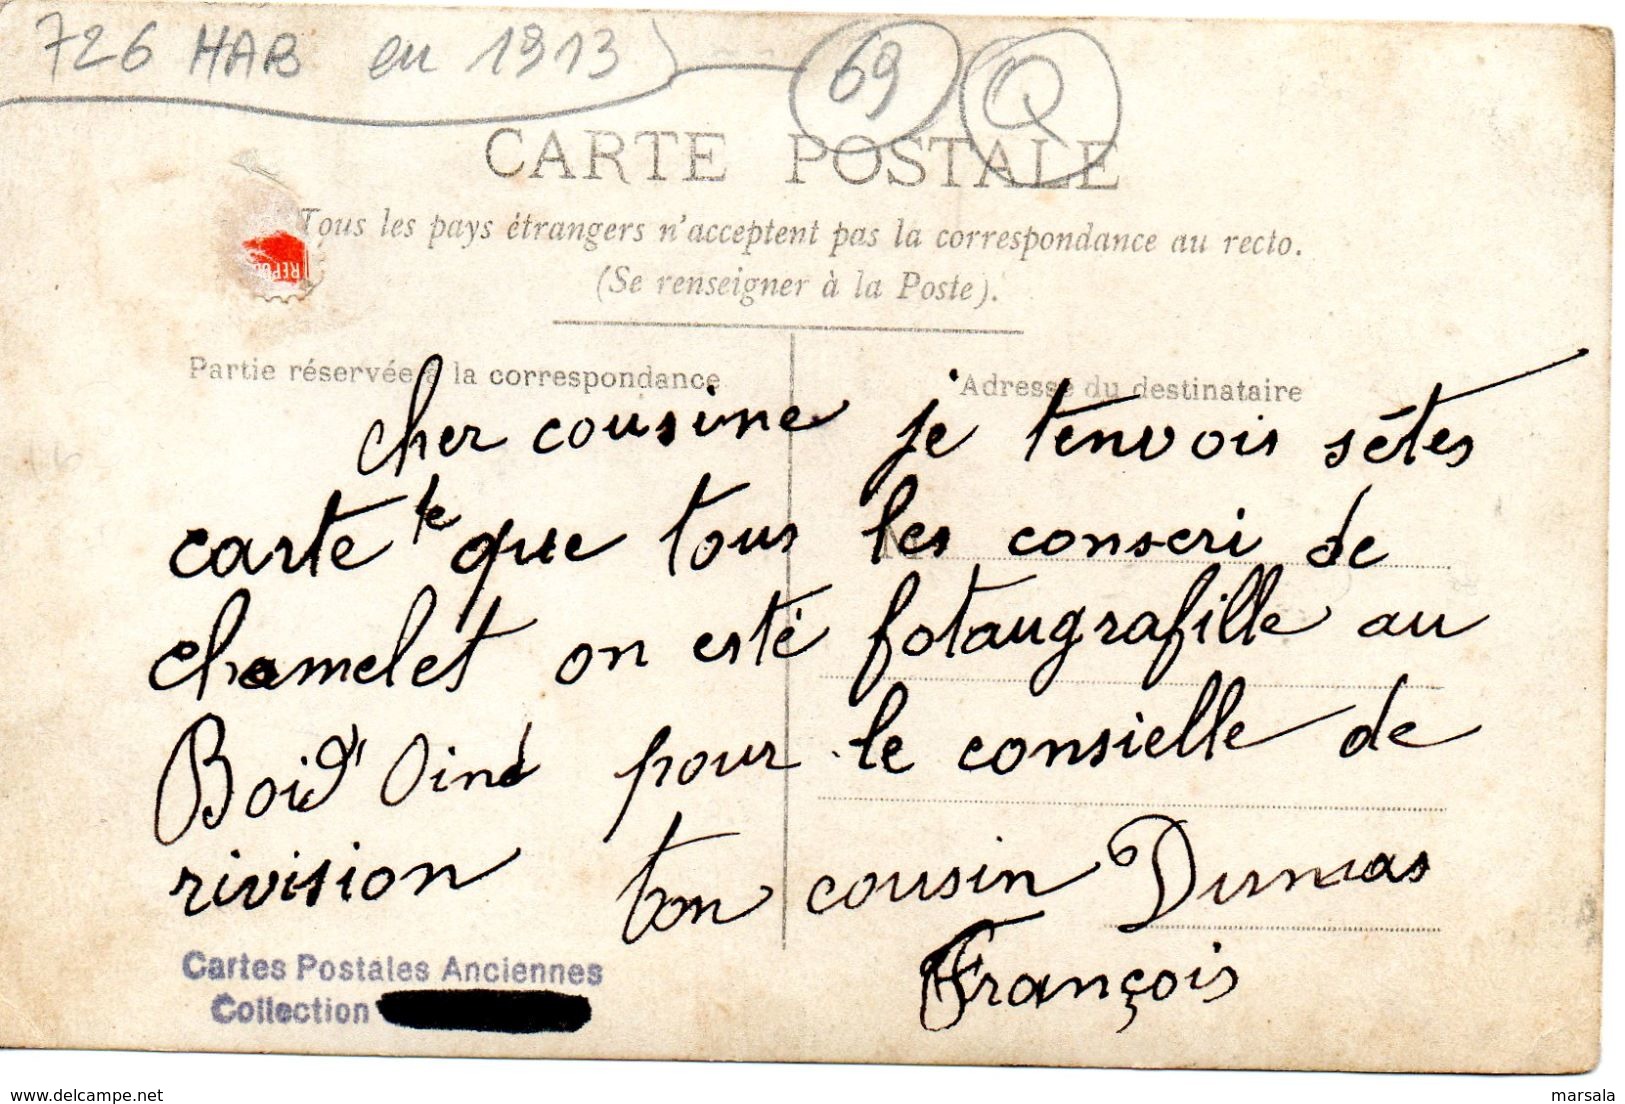 726 HAB en 1913 69 Q
CARTE POSTALE
Tous les pays étrangers n'acceptent pas la correspondance au recto.
(Se renseigner à la Poste).
REPU
Partie réservée à la correspondance
Adresse du destinataire
cher cousine je tenvois sétes
carte te que tous les conscri de
chamelet on esté fotaugrafille au
Boid' Oind pour le consielle de
rivision ton cousin Dumas
François
Cartes Postales Anciennes
Collection
www.delcampe.net
marsala